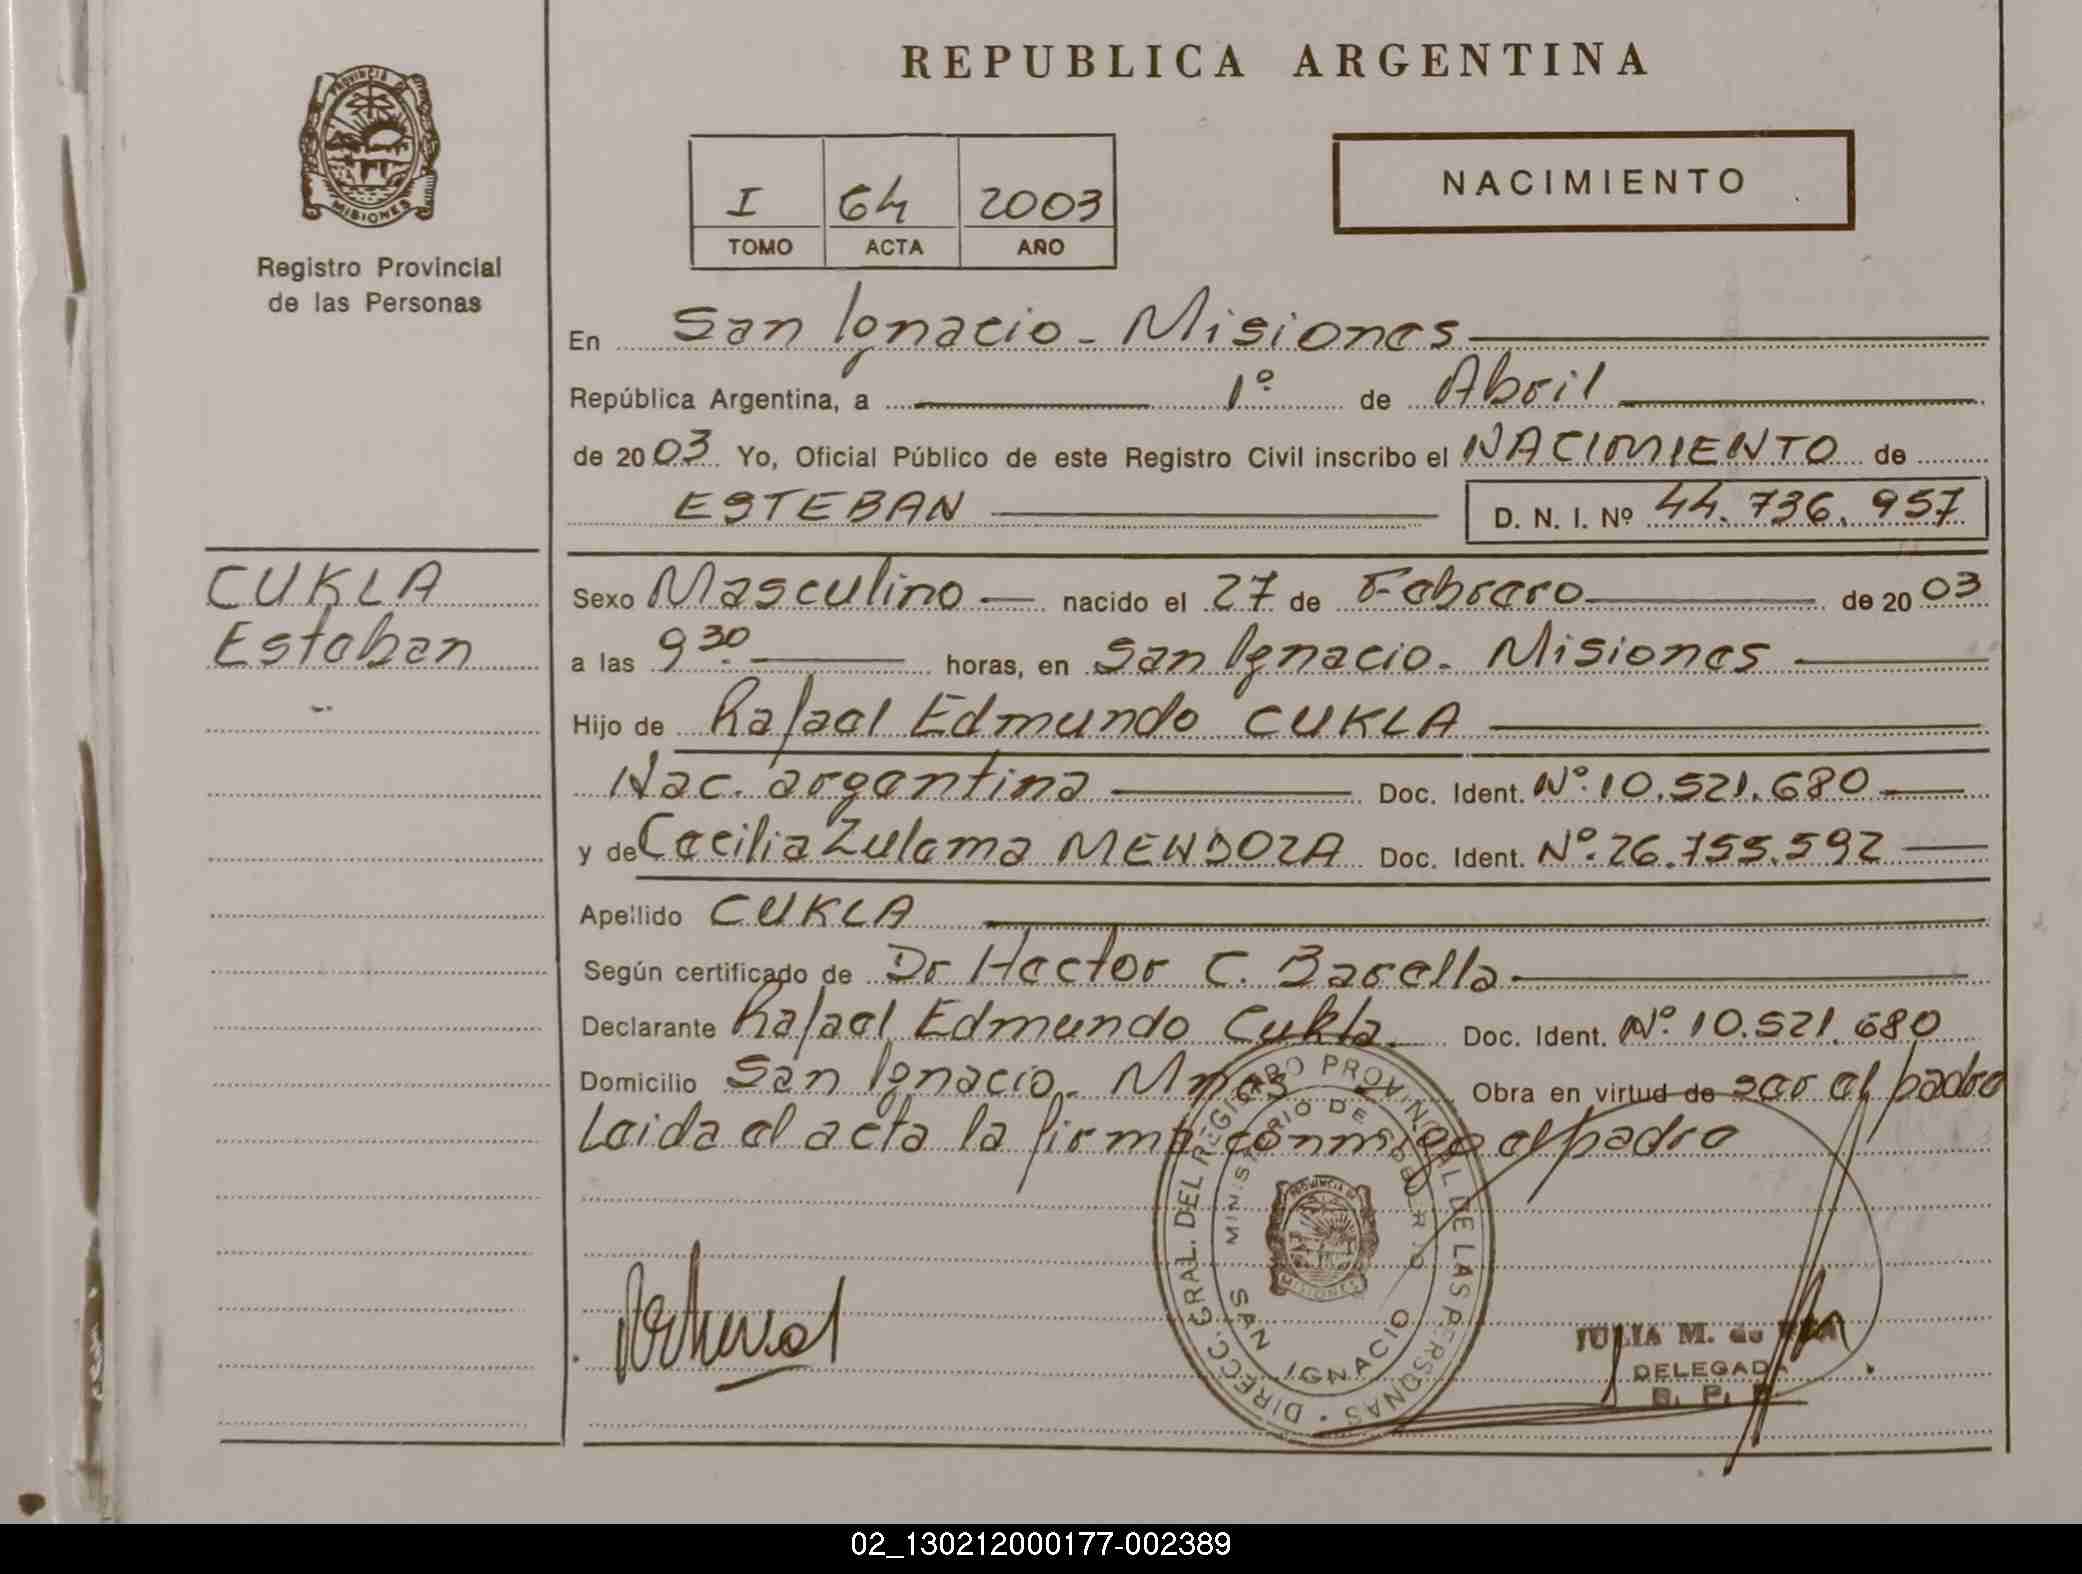 REPUBLICA ARGENTINA
PROVINCIA DE
MISIONES
Registro Provincial
de las Personas
I 64 2003
TOMO ACTA AÑO
NACIMIENTO
En San Ignacio - Misiones
República Argentina, a 1º de Abril
de 2003 Yo, Oficial Público de este Registro Civil inscribo el NACIMIENTO de
ESTEBAN D. N. I. Nº 44.736.957
CUKLA
Esteban
Sexo Masculino nacido el 27 de Febrero de 2003
a las 9 30 horas, en San Ignacio - Misiones
Hijo de Rafael Edmundo CUKLA
Nac. argentina Doc. Ident. Nº 10.521.680
y de Cecilia Zulema MENDOZA Doc. Ident. Nº 26.755.592
Apellido CUKLA
Según certificado de Dr Hector C. Barella
Declarante Rafael Edmundo Cukla Doc. Ident. Nº 10.521.680
Domicilio San Ignacio - Mnes Obra en virtud de ser el padre
Leida el acta la firma conmigo el padre
DIRECC. GRAL. DEL REGISTRO PROVINCIAL DE LAS PERSONAS
MINISTERIO DE GOBIERNO
SAN IGNACIO
MISIONES
JULIA M. de
DELEGADA
R. P. P.
02_130212000177-002389